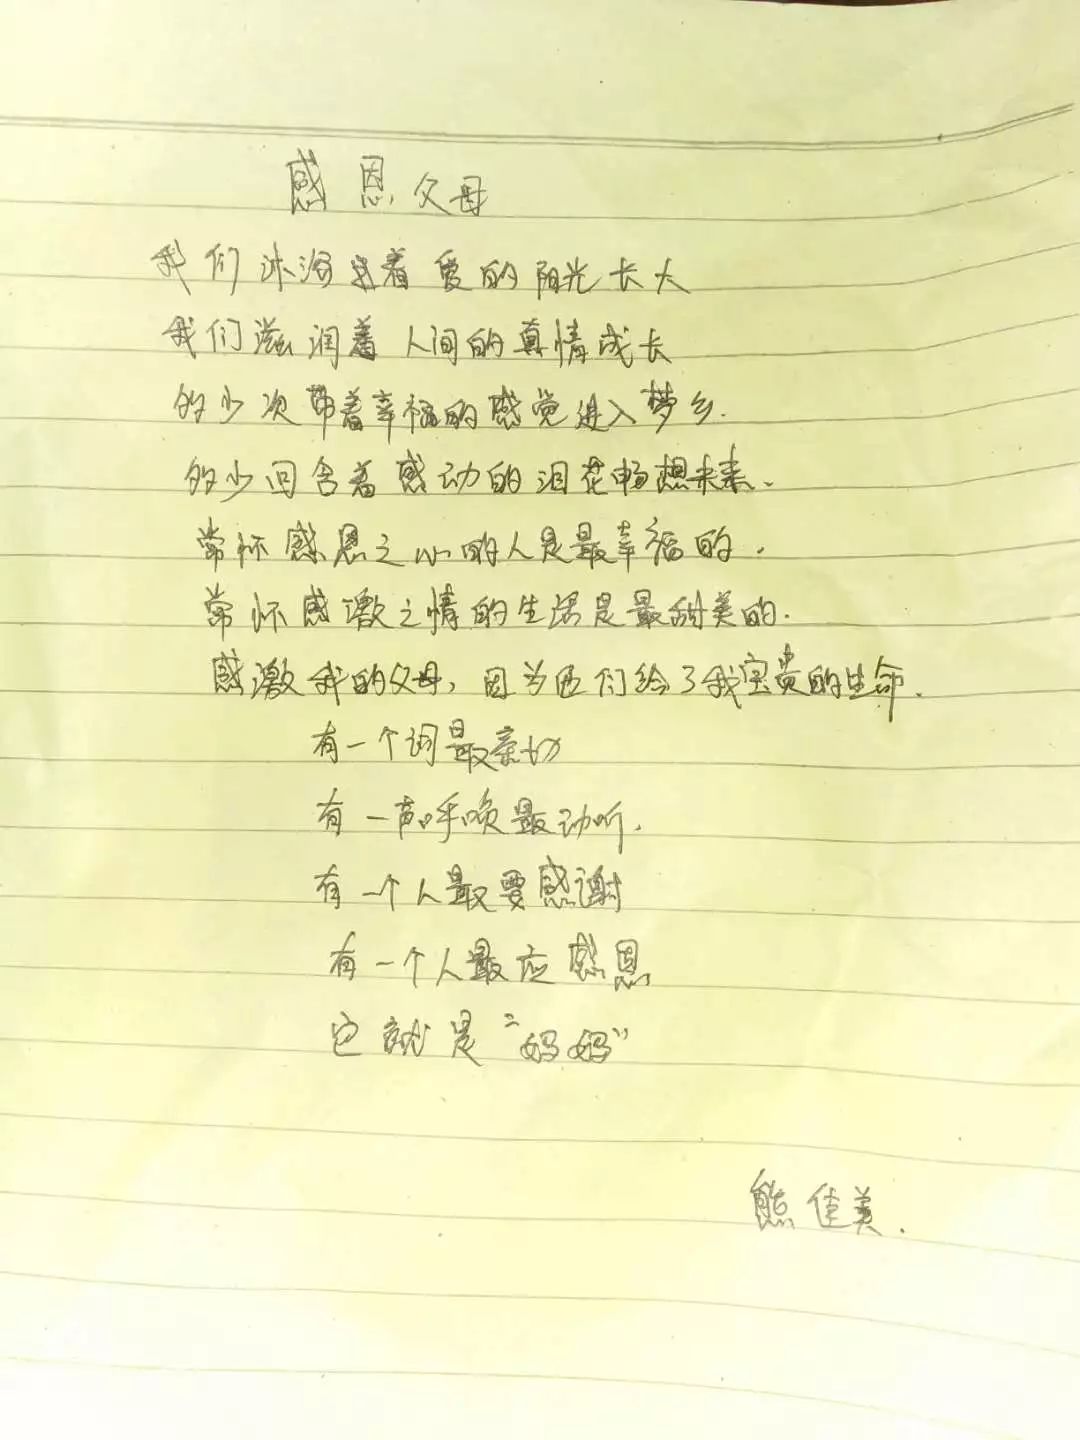 感恩父母
我们沐浴着爱的阳光长大
我们滋润着人间的真情成长
的少次带着幸福的感觉进入梦乡.
的少回含着感动的泪花畅想未来.
常怀感恩之心的人是最幸福的.
常怀感激之情的生活是最甜美的.
感激我的父母,因为他们给了我宝贵的生命.
有一个词最亲切
有一声呼唤最动听.
有一个人最要感谢
有一个人最应感恩
它就是“妈妈”
熊佳美.